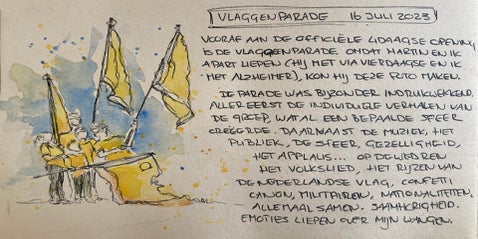 VLAGGENPARADE 16 JULI 2023
VOORAF AAN DE OFFICIËLE 4DAAGSE OPENING
IS DE VLAGGENPARADE. OMDAT MARTIN EN IK
APART LIEPEN (HIJ MET VIA VIERDAAGSE EN IK
MET ALZHEIMER), KON HIJ DEZE FOTO MAKEN.
DE PARADE WAS BIJZONDER INDRUKWEKKEND.
ALLEREERST DE INDIVIDUELE VERHALEN VAN
DE GROEP, WAT AL EEN BEPAALDE SFEER
CREËERDE. DAARNAAST DE MUZIEK, HET
PUBLIEK, DE SFEER, GEZELLIGHEID,
HET APPLAUS... OP DE WEDREN
HET VOLKSLIED, HET RIJZEN VAN
DE NEDERLANDSE VLAG, CONFETTI
CANON, MILITAIREN, NATIONALITEITEN,
ALLEMAAL SAMEN. SAAMHORIGHEID.
EMOTIES LIEPEN OVER MIJN WANGEN.